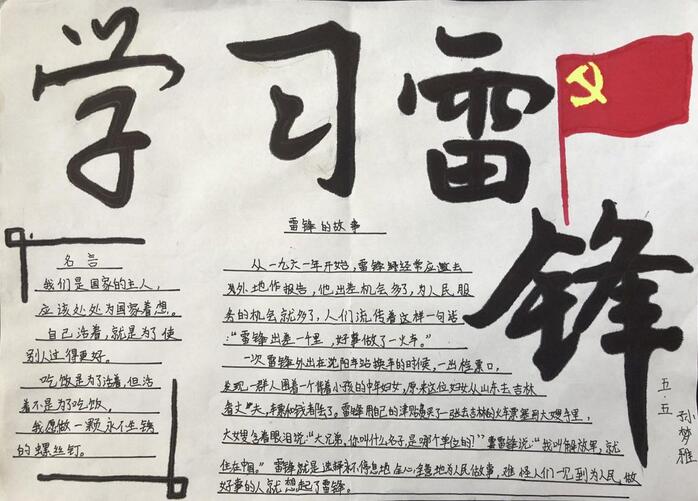 学习雷锋
名言
我们是国家的主人，
应该处处为国家着想。
自己活着，就是为了使
别人过得更好。
吃饭是为了活着，但活
着不是为了吃饭，
我愿做一颗永不生锈
的螺丝钉。
雷锋的故事
从一九六一年开始，雷锋经常应邀去
外地作报告，他出差机会多了，为人民服
务的机会就多了，人们流传着这样一句话
：“雷锋出差一千里，好事做了一火车。”
一次雷锋外出在沈阳车站换车的时候，一出检票口，
发现一群人围着一个背着小孩的中年妇女，原来这位妇女从山东去吉林
看丈夫，车票和钱丢了。雷锋用自己的津贴费买了一张去吉林的火车票塞到大嫂手里，
大嫂含着眼泪说：“大兄弟，你叫什么名子，是哪个单位的？”雷锋说：“我叫解放军，就
住在中国。”雷锋就是这样永不停息地全心全意地为人民做事，难怪人们一见到为人民做
好事的人就想起了雷锋。
五.五
孙梦雅